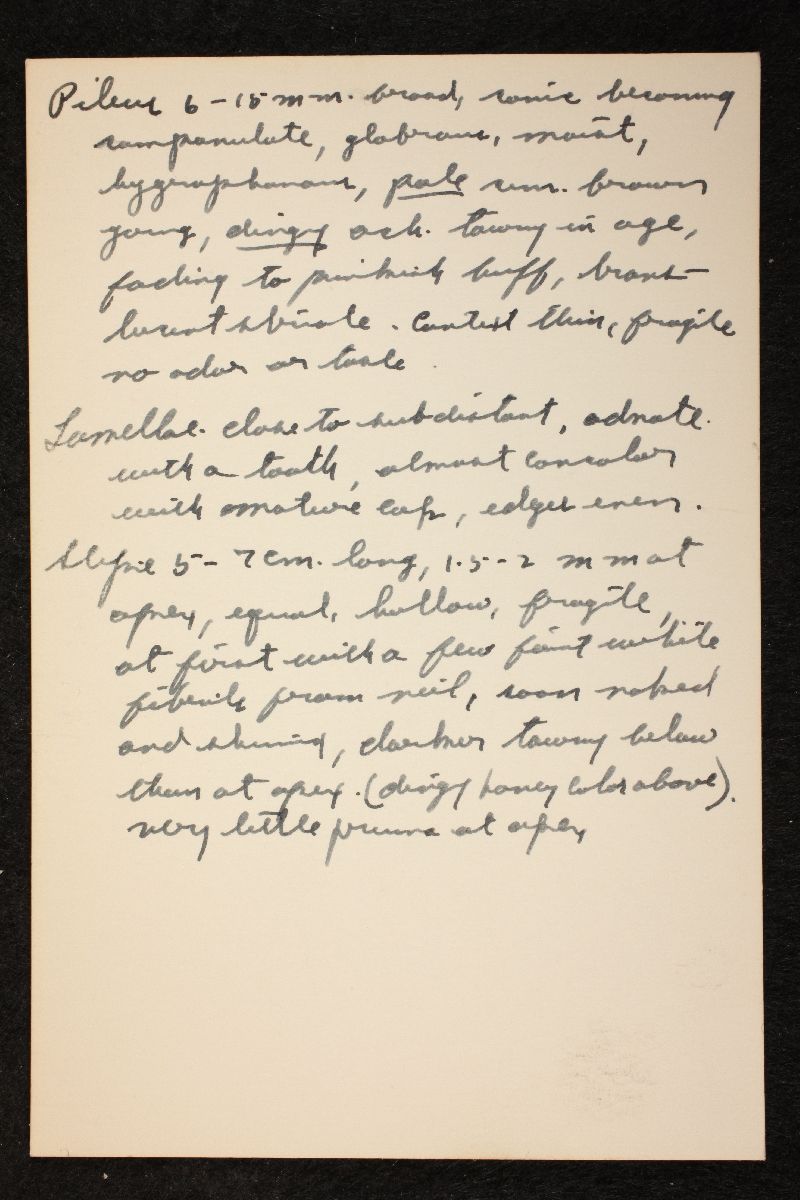 Pileus 6-15 mm. broad, conic becoming
campanulate, glabrous, moist,
hygrophanous, pale cinn. brown
young, dingy och. tawny in age,
fading to pinkish buff, trans-
lucent striate. Context thin, fragile
no odor or taste
Lamellae close to subdistant, adnate
with a tooth, almost concolor
with mature cap, edges even.
Stipe 5-7 cm. long, 1.5-2 mm at
apex, equal, hollow, fragile,
at first with a few faint white
fibrils from veil, soon naked
and shining, darker tawny below
than at apex. (dingy honey color above).
very little pruina at apex